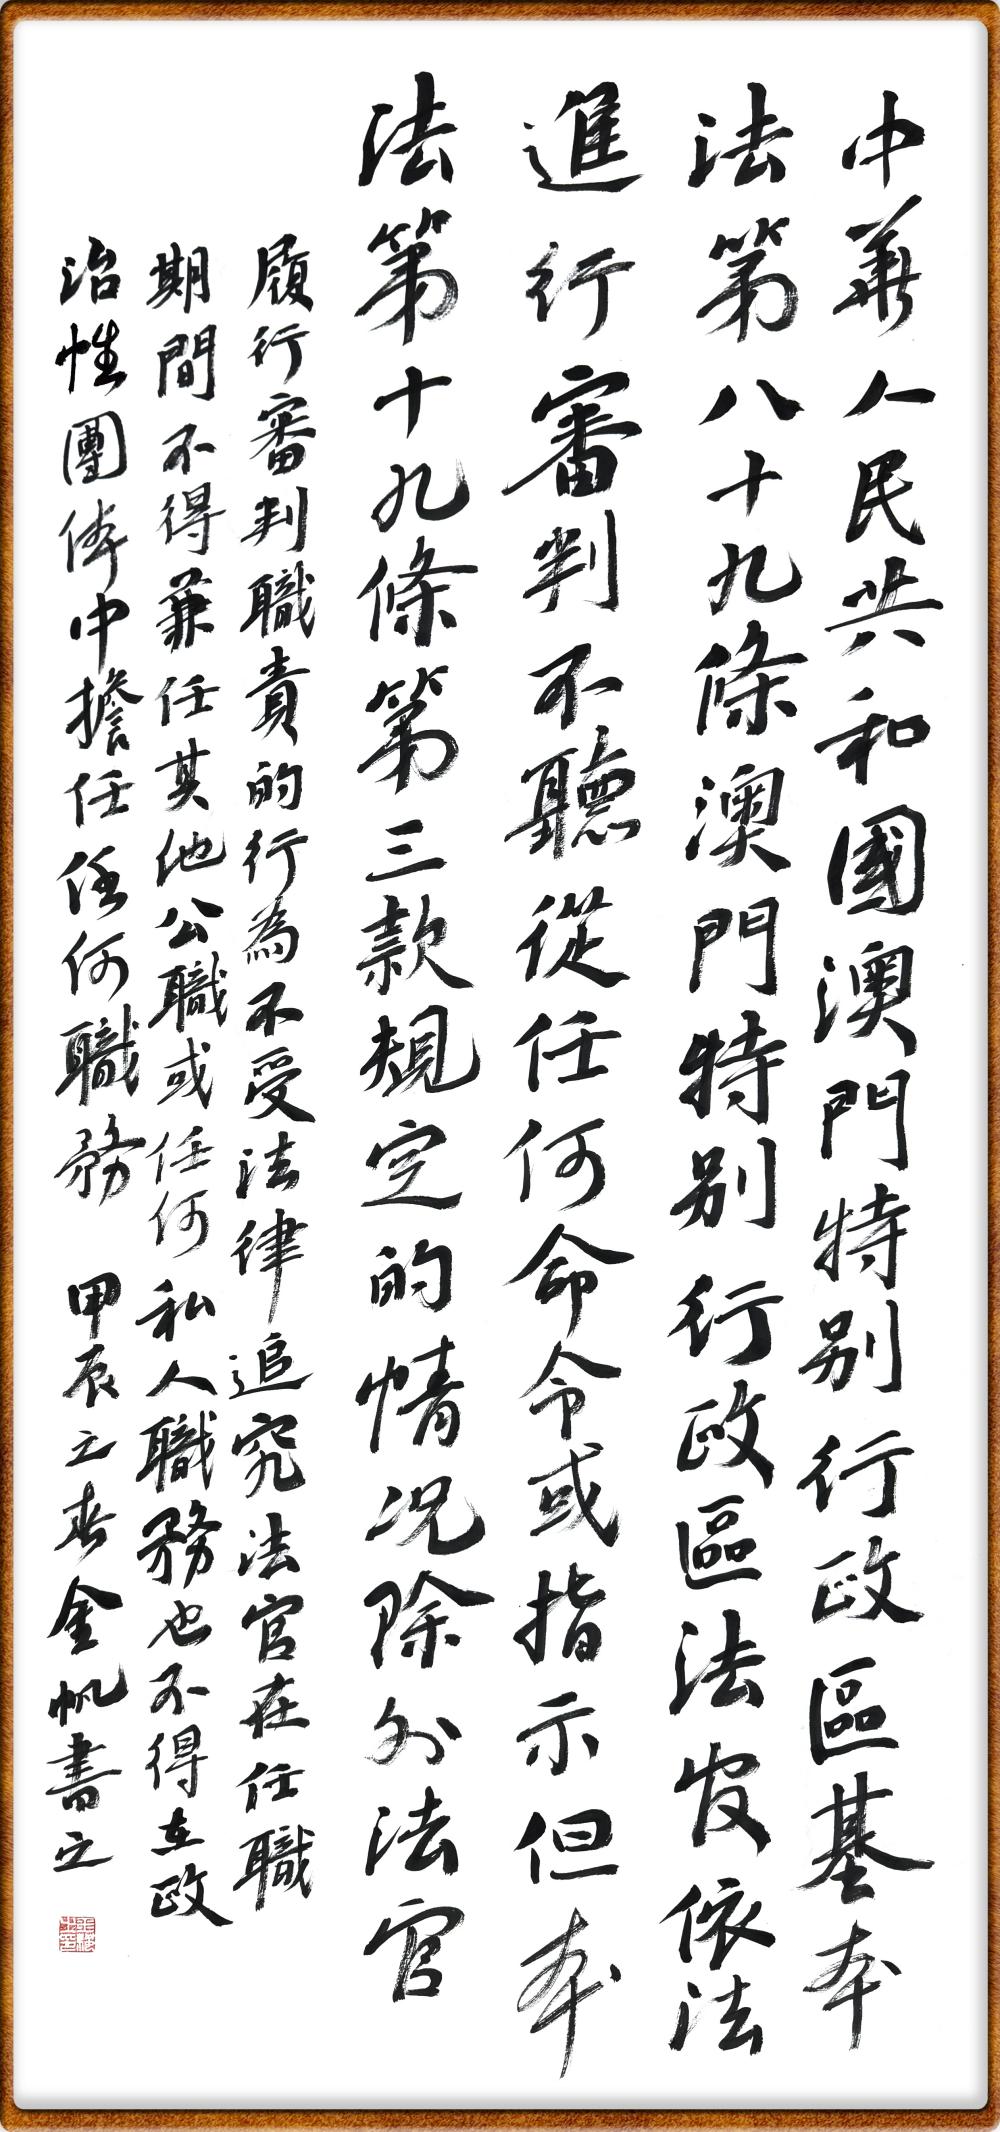 中華人民共和國澳門特別行政區基本
法第八十九條澳門特別行政區法官依法
進行審判不聽從任何命令或指示但本
法第十九條第三款規定的情况除外法官
履行審判職責的行為不受法律追究法官在任職
期間不得兼任其他公職或任何私人職務也不得在政
治性團体中擔任任何職務 甲辰之春金帆書之